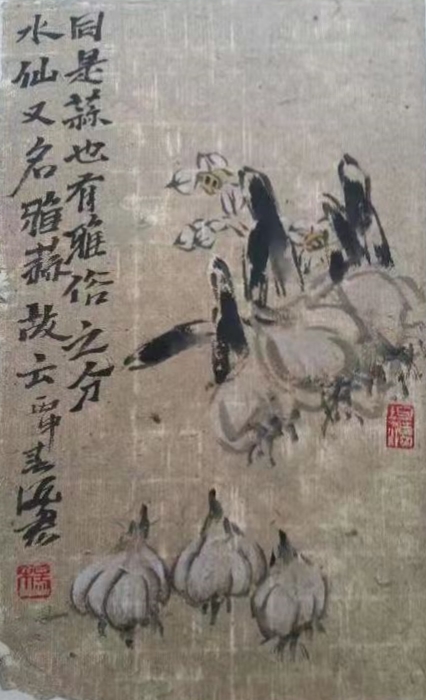 同是蒜也有雅俗之分
水仙又名雅蒜故云